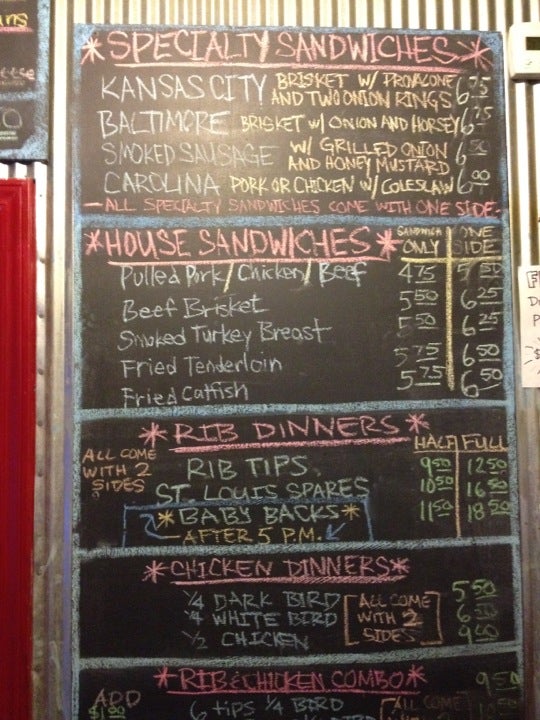 *SPECIALTY SANDWICHES*
KANSAS CITY BRISKET W/ PROVALONE AND TWO ONION RINGS 6 75
BALTIMORE BRISKET W/ ONION AND HORSEY 6 75
SMOKED SAUSAGE W/ GRILLED ONION AND HONEY MUSTARD 6
CAROLINA PORK OR CHICKEN W/ COLESLAW 6 00
- ALL SPECIALTY SANDWICHES COME WITH ONE SIDE -
*HOUSE SANDWICHES* SANDWICH ONLY ONE SIDE
Pulled Pork / Chicken / Beef 4 75 5 50
Beef Brisket 5 50 6 25
Smoked Turkey Breast 5 50 6 25
Fried Tenderloin 5 75 6 50
Fried Catfish 5 75 6 50
*RIB DINNERS* HALF FULL
ALL COME WITH 2 SIDES
RIB TIPS 9 50 12 50
ST. LOUIS SPARES 10 50 16 50
*BABY BACKS* 11 50 18 50
AFTER 5 P.M.
*CHICKEN DINNERS*
1/4 DARK BIRD 5 50
1/4 WHITE BIRD 6
1/2 CHICKEN
ALL COME WITH 2 SIDES
*RIB & CHICKEN COMBO*
ADD
6 tips 1/4 BIRD
ALL COME